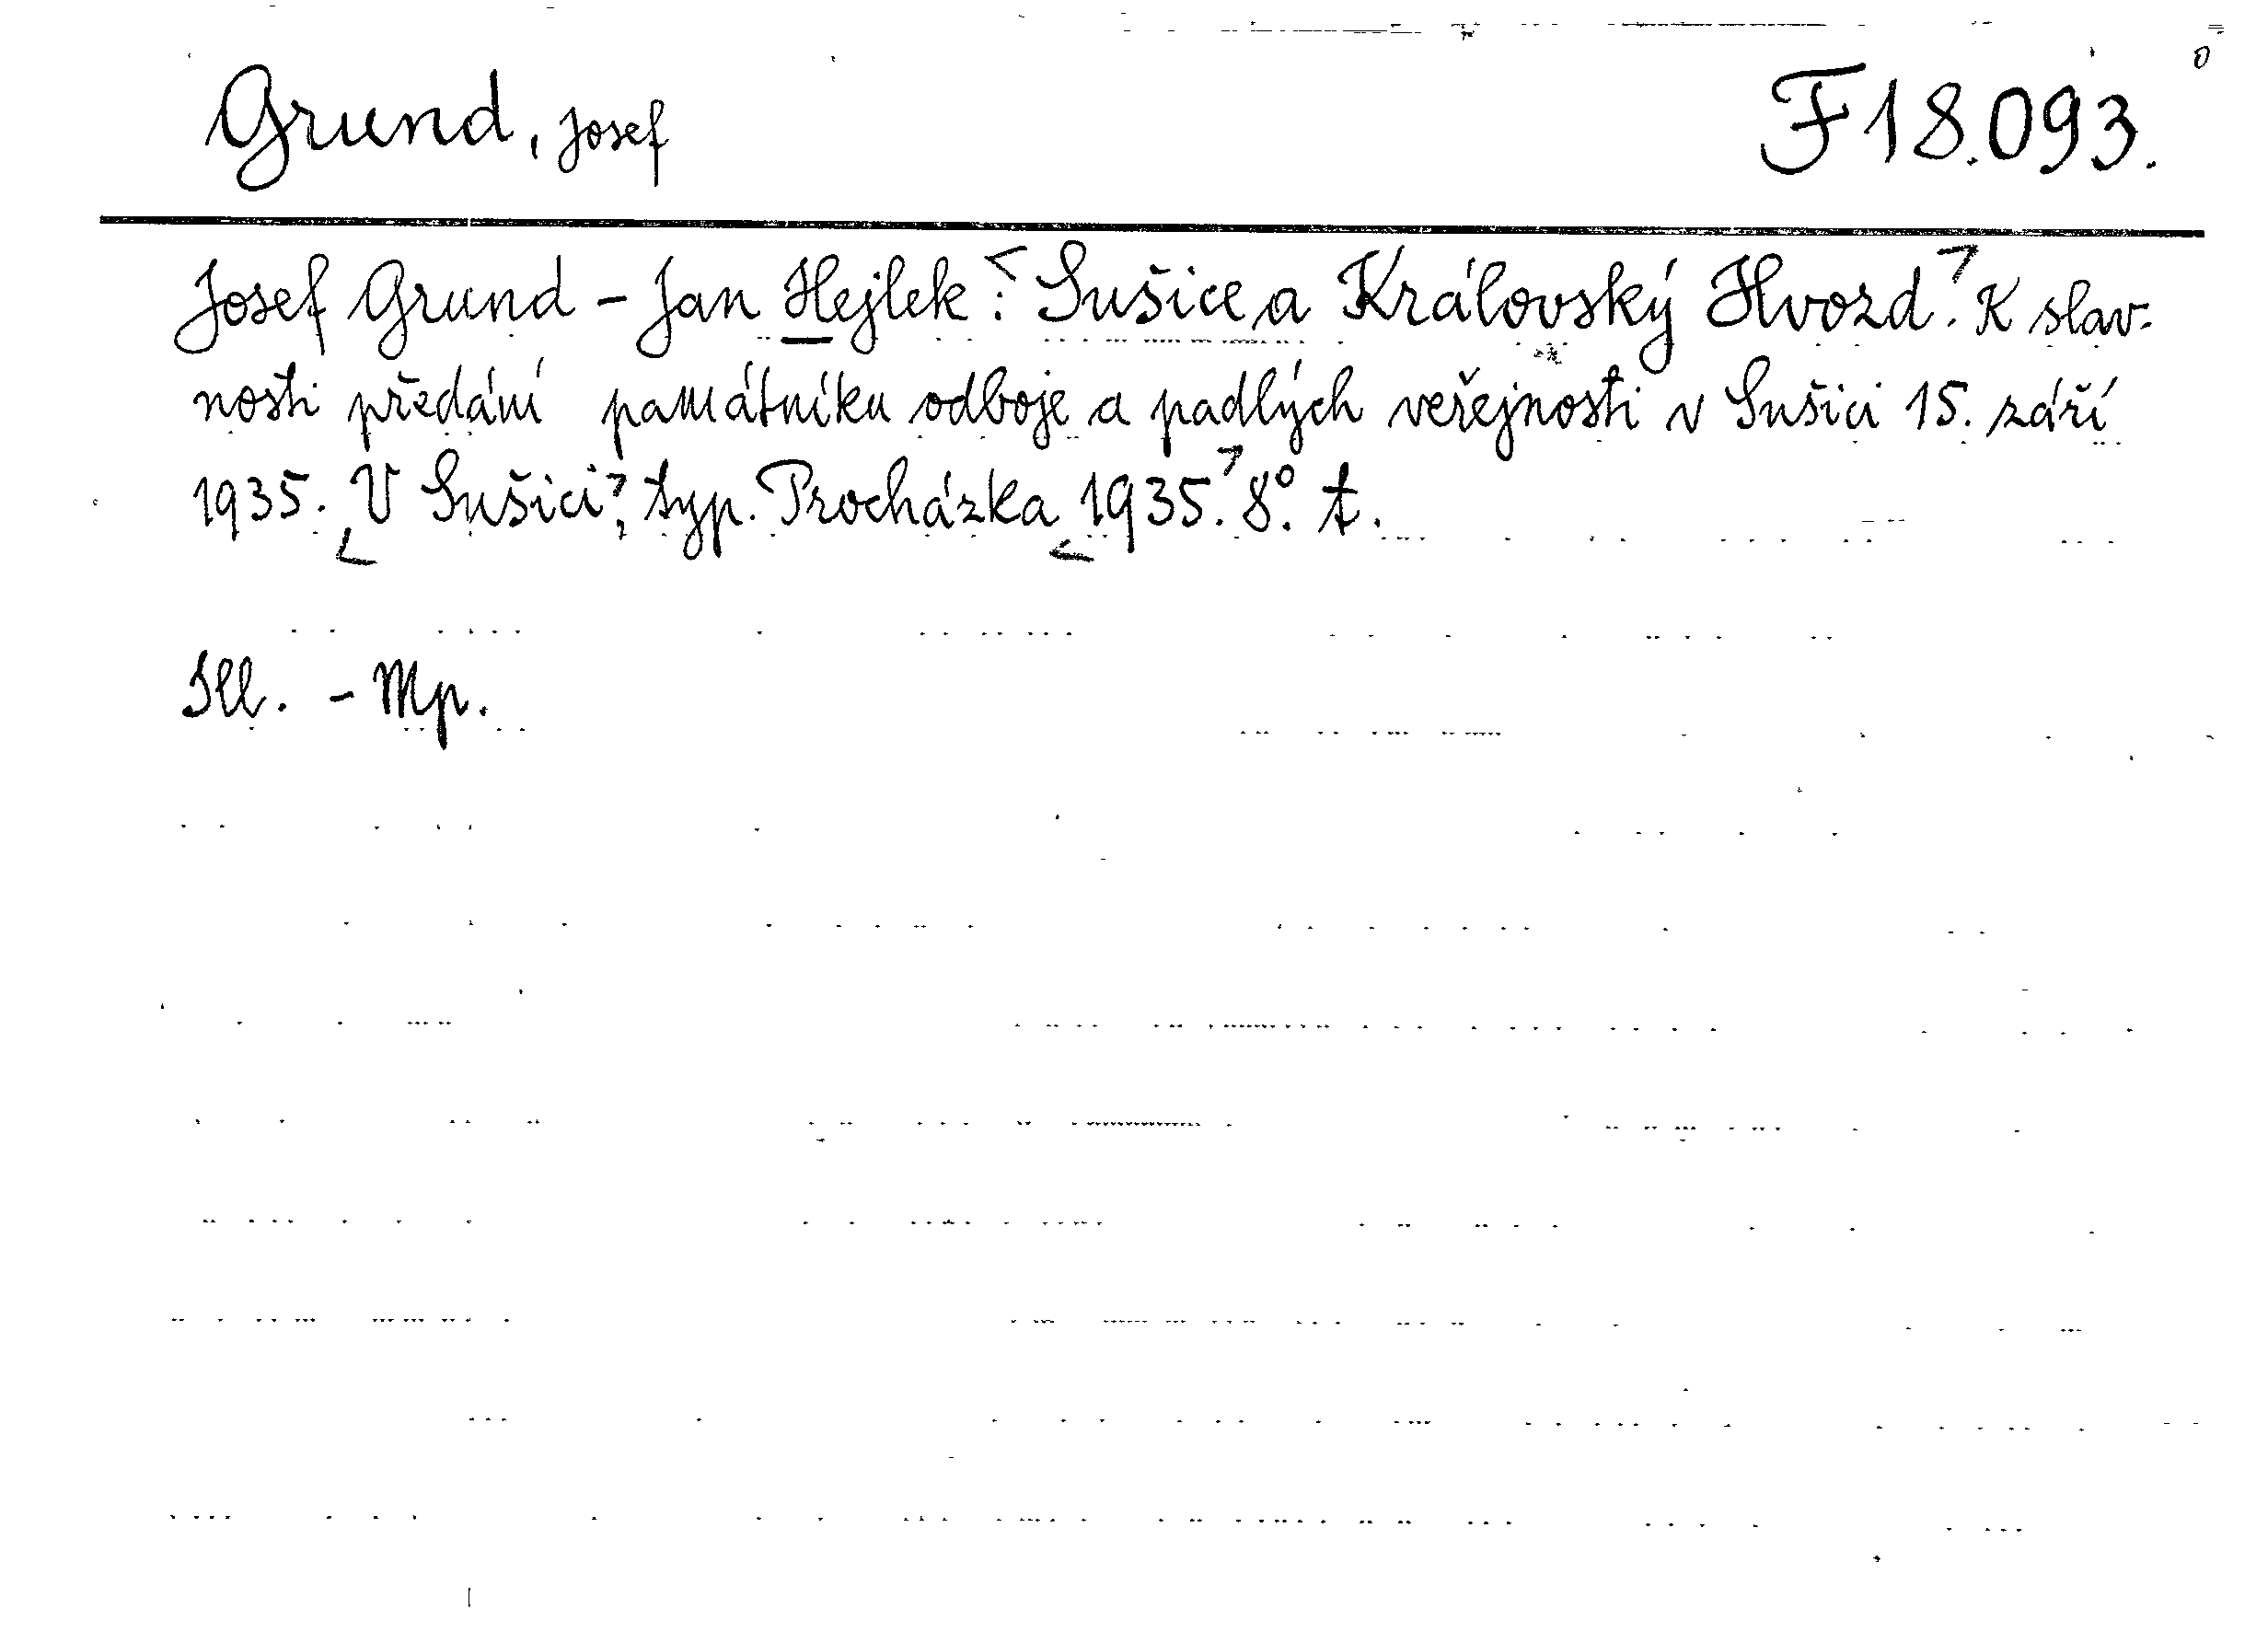 Grund, Josef F 18.093.
Josef Grund - Jan Hejlek: <Sušice a Královský Hvozd>. K slav-
nosti předání památníku odboje a padlých veřejnosti v Sušici 15. září
1935. <V Sušici>, typ. Procházka <1935.> 8°. t.
Ill. - Mp.